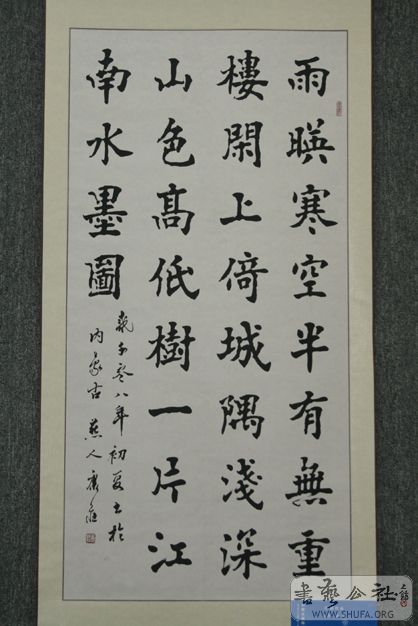 雨暎寒空半有無重
樓閑上倚城隅淺深
山色髙低樹一片江
南水墨圖
八年初夏書於
內蒙古燕人
書藝公社
WWW.SHUFA.ORG